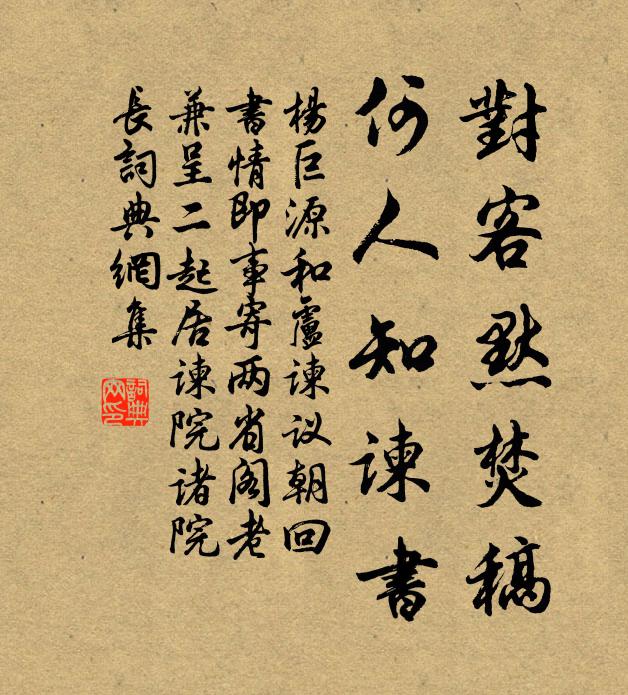 對客默焚稿
何人知諫書
楊巨源和盧諫议朝回
書情即事寄两省阁老
兼呈二起居諫院诸院
長詞典網集
詞典网印